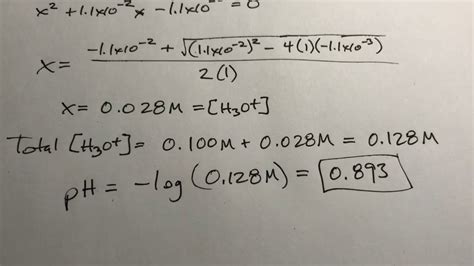 x² + 1.1x10⁻²x - 1.1x10 = 0
x = -1.1x10⁻² + √(1.1x10⁻²)² - 4(1)(-1.1x10⁻³) / 2(1)
x = 0.028M = [H₃O+]
Total [H₃O+] = 0.100M + 0.028M = 0.128M
pH = -log(0.128M) = 0.893